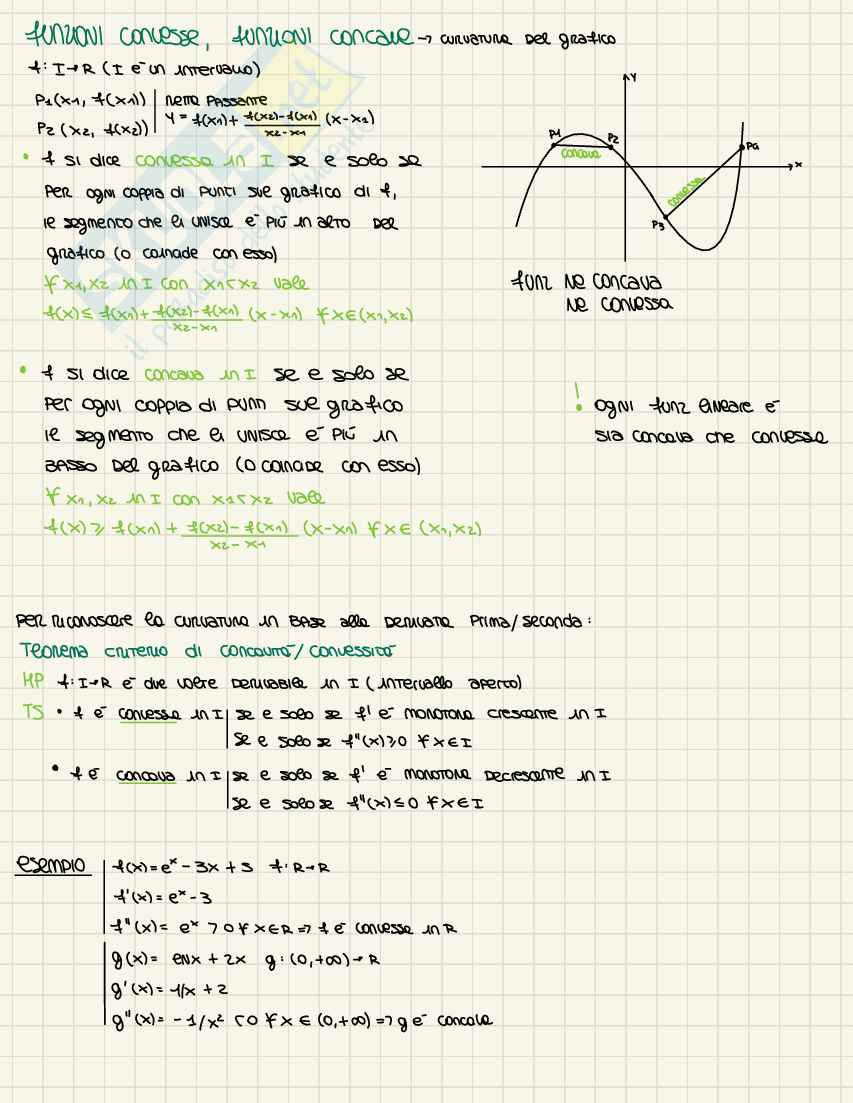 FUNZIONI CONVESSE, FUNZIONI CONCAVE → CURVATURA DEL GRAFICO
f: I→R (I è un intervallo)
P1(x1, f(x1)) | RETTA PASSANTE
P2(x2, f(x2)) | Y = f(x1) + f(x2)-f(x1)/x2-x1 (x-x1)
• f si dice convessa in I se e solo se
per ogni coppia di punti sul grafico di f,
il segmento che li unisce è più in alto del
grafico (o coincide con esso)
∀x1,x2 in I con x1<x2 vale
f(x) ≤ f(x1) + f(x2)-f(x1)/x2-x1 (x-x1) ∀x∈(x1,x2)
Y
P1
P2
concava
P4
x
convessa
P3
funz né concava
né convessa
• f si dice concava in I se e solo se
per ogni coppia di punti sul grafico
il segmento che li unisce è più in
BASSO del grafico (o coincide con esso)
∀x1,x2 in I con x1<x2 vale
f(x) ≥ f(x1) + f(x2)-f(x1)/x2-x1 (x-x1) ∀x∈(x1,x2)
! ogni funz lineare è
sia concava che convessa
PER RICONOSCERE la CURVATURA in BASE alla DERIVATA Prima/seconda:
Teorema criterio di concavità/convessità
HP f: I→R è due volte derivabile in I (intervallo aperto)
TS • f è convessa in I | se e solo se f' è monotona crescente in I
se e solo se f''(x)≥0 ∀x∈I
• f è concava in I | se e solo se f' è monotona decrescente in I
se e solo se f''(x)≤0 ∀x∈I
esempio | f(x)=e^x - 3x + 5 f: R→R
f'(x)= e^x - 3
f''(x)= e^x >0 ∀x∈R ⇒ f è convessa in R
g(x)= lnx + 2x g: (0,+∞)→R
g'(x)= 1/x + 2
g''(x)= -1/x² <0 ∀x∈(0,+∞) ⇒ g è concava